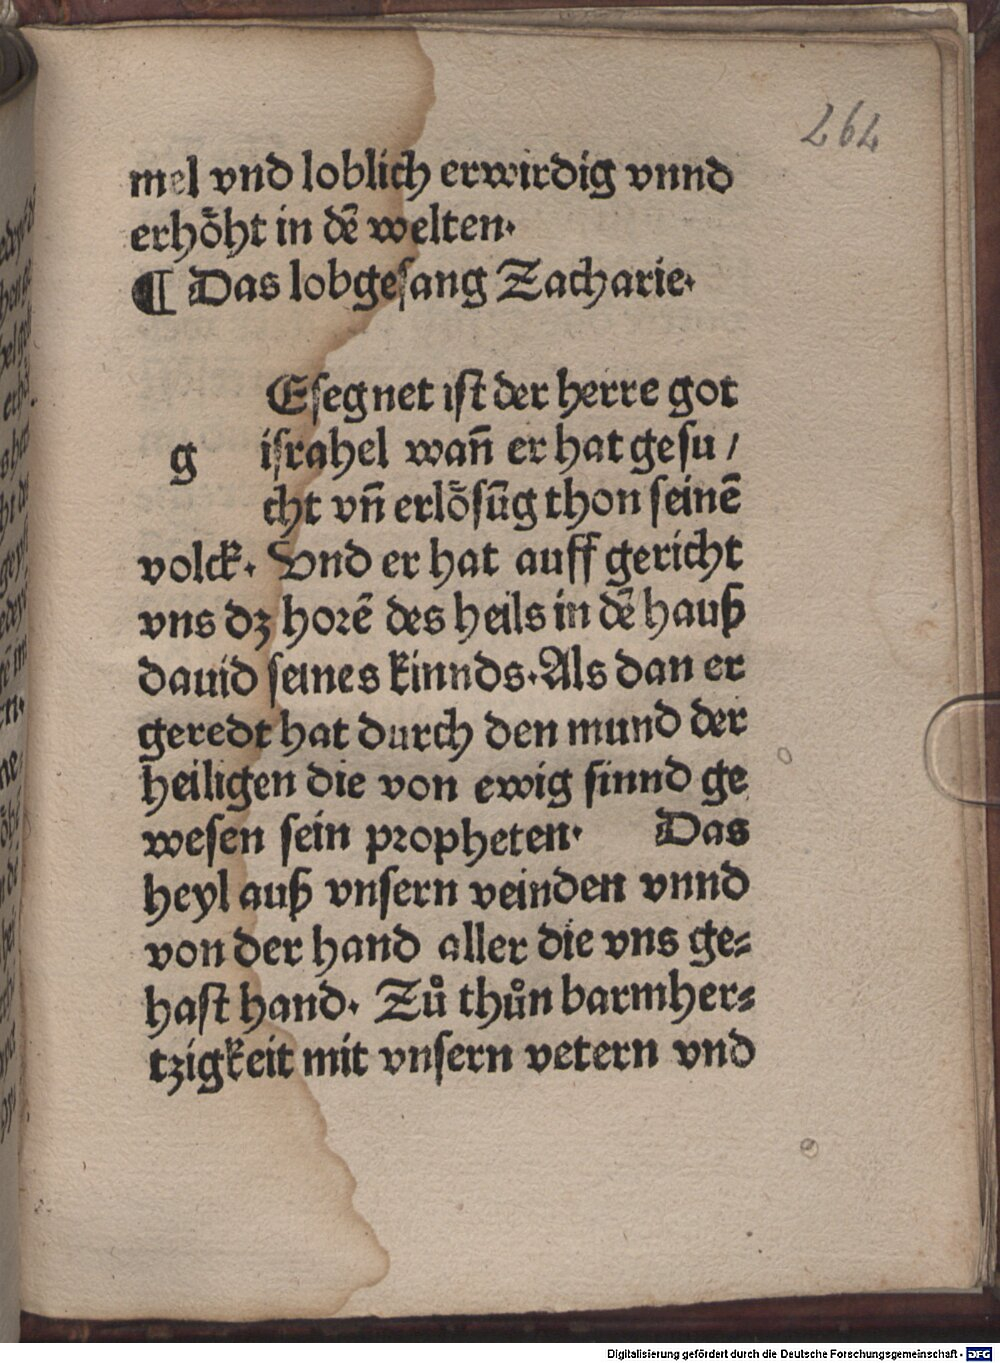 264
mel vnd loblich erwirdig vnnd
erhöht in dē welten.
¶ Das lobgesang Zacharie.
Esegnet ist der herre got
g israhel wañ er hat gesu /
cht vñ erlösūg thon seinē
volck. Vnd er hat auff gericht
vns dz horē des heils in dē hauß
dauid seines kinnds. Als dan er
geredt hat durch den mund der
heiligen die von ewig sinnd ge
wesen sein propheten. Das
heyl auß vnsern veinden vnnd
von der hand aller die vns ge=
hast hand. Zů thůn barmher=
tzigkeit mit vnsern vetern vnd
Digitalisierung gefördert durch die Deutsche Forschungsgemeinschaft - DFG